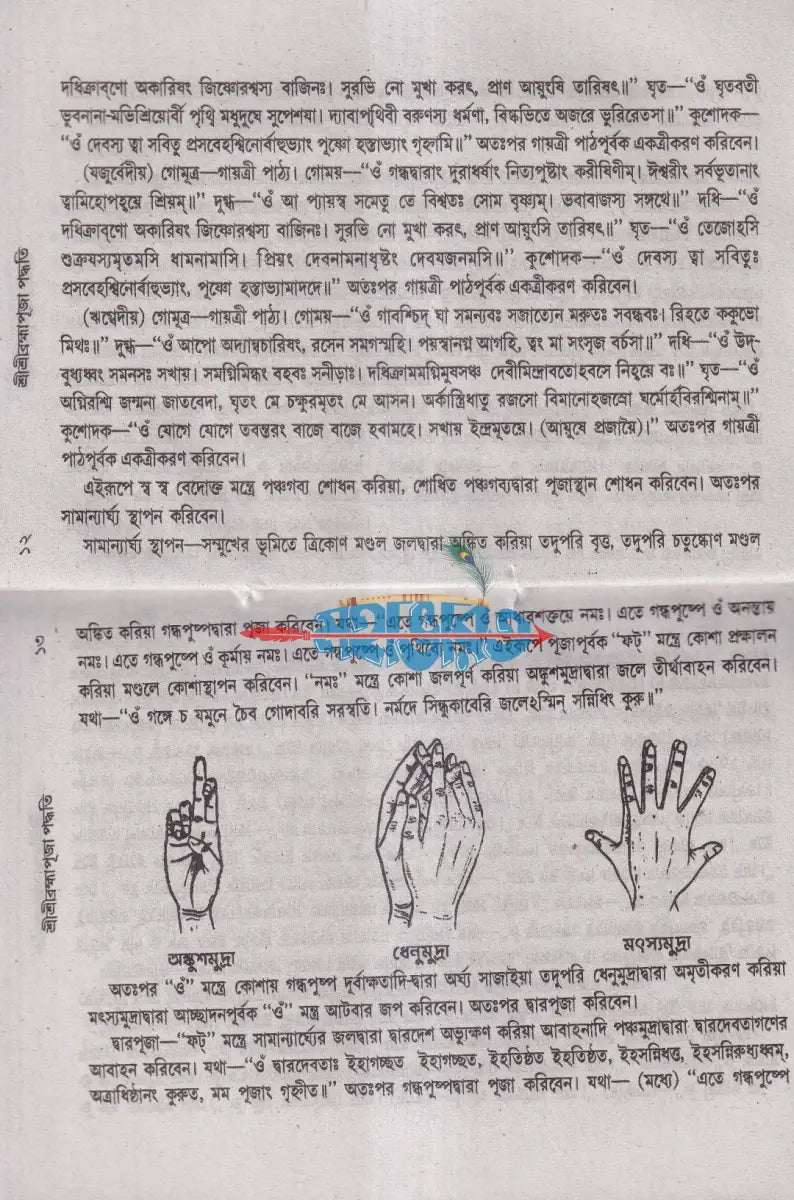 দধিক্রাব্‌ণো অকারিষং জিষ্ণোরশ্বস্য বাজিনঃ। সুরভি নো মুখা করৎ, প্রাণ আয়ুংষি তারিষৎ॥” ঘৃত—“ওঁ ঘৃতবতী
ভুবনানা-মভিশ্রিয়োর্বী পৃথ্বি মধুদুঘে সুপেশযা। দ্যাবাপৃথিবী বরুণস্য ধর্মণা, বিষ্কভিতে অজরে ভূরিরেতসা॥” কুশোদক—
“ওঁ দেবস্য ত্বা সবিতু প্রসবেহশ্বিনোর্বাহুভ্যাং পুষ্ণো হস্তাভ্যাং গৃহ্নামি॥” অতঃপর গায়ত্রী পাঠপূর্বক একত্রীকরণ করিবেন।
(যজুর্বেদীয়) গোমূত্র—গায়ত্রী পাঠ্য। গোময়—“ওঁ গন্ধদ্বারাং দুরাধর্ষাং নিত্যপুষ্টাং করীষিণীম্। ঈশ্বরীং সর্বভূতানাং
ত্বামিহোপহ্বয়ে শ্রিয়ম্॥” দুগ্ধ—“ওঁ আ প্যায়স্ব সমেতু তে বিশ্বতঃ সোম বৃষ্ণ্যম্। ভবাবাজস্য সঙ্গথে॥” দধি—“ওঁ
দধিক্রাব্‌ণো অকারিষং জিষ্ণোরশ্বস্য বাজিনঃ। সুরভি নো মুখা করৎ, প্রাণ আয়ুংসি তারিষৎ॥” ঘৃত—“ওঁ তেজোহসি
শুক্রমস্যমৃতমসি ধামনামাসি। প্রিয়ং দেবনামনাধৃষ্টং দেবযজনমসি॥” কুশোদক—“ওঁ দেবস্য ত্বা সবিতুঃ
প্রসবেহশ্বিনোর্বাহুভ্যাং, পুষ্ণো হস্তাভ্যামাদদে॥” অতঃপর গায়ত্রী পাঠপূর্বক একত্রীকরণ করিবেন।
(ঋগ্বেদীয়) গোমূত্র—গায়ত্রী পাঠ্য। গোময়—“ওঁ গাবশ্চিদ্ ঘা সমন্যবঃ সজাত্যেন মরুতঃ সবন্ধবঃ। রিহতে ককুভো
মিথঃ॥” দুগ্ধ—“ওঁ আপো অদ্যান্বচারিষং, রসেন সমগন্মহি। পয়স্বানগ্ন আগহি, ত্বং মা সংসৃজ বর্চসা॥” দধি—“ওঁ উদ্-
বুধ্যধ্বং সমনসঃ সখায়। সমগ্নিমিন্ধং বহবঃ সনীড়াঃ। দধিক্রামমগ্নিমুষসঞ্চ দেবীমিন্দ্রাবতোহবসে নিহ্বয়ে বঃ॥” ঘৃত—“ওঁ
অগ্নিরশ্মি জন্মনা জাতবেদা, ঘৃতং মে চক্ষুরমৃতং মে আসন। অর্কস্ত্রিধাতু রজসো বিমানোহজস্রো ঘর্মোহবিরশ্মিনাম্॥”
কুশোদক—“ওঁ যোগে যোগে তবস্তরং বাজে বাজে হবামহে। সখায় ইন্দ্রমূতয়ে। (আয়ুষে প্রজায়ৈ)।” অতঃপর গায়ত্রী
পাঠপূর্বক একত্রীকরণ করিবেন।
এইরূপে স্ব স্ব বেদোক্ত মন্ত্রে পঞ্চগব্য শোধন করিয়া, শোধিত পঞ্চগব্যদ্বারা পূজাস্থান শোধন করিবেন। অতঃপর
সামান্যার্ঘ্য স্থাপন করিবেন।
সামান্যার্ঘ্য স্থাপন—সম্মুখের ভূমিতে ত্রিকোণ মণ্ডল জলদ্বারা অঙ্কিত করিয়া তদুপরি বৃত্ত, তদুপরি চতুষ্কোণ মণ্ডল
শ্রীশ্রীব্রহ্মাপূজা পদ্ধতি
১২
অঙ্কিত করিয়া গন্ধপুষ্পদ্বারা পূজা করিবেন। যথা—“এতে গন্ধপুষ্পে ওঁ আধারশক্তয়ে নমঃ। এতে গন্ধপুষ্পে ওঁ অনন্তায়
নমঃ। এতে গন্ধপুষ্পে ওঁ কূর্মায় নমঃ। এতে গন্ধপুষ্পে ওঁ পৃথিব্যৈ নমঃ।” এইরূপে পূজাপূর্বক “ফট্” মন্ত্রে কোশা প্রক্ষালন
করিয়া মণ্ডলে কোশাস্থাপন করিবেন। “নমঃ” মন্ত্রে কোশা জলপূর্ণ করিয়া অঙ্কুশমুদ্রাদ্বারা জলে তীর্থাবাহন করিবেন।
যথা—“ওঁ গঙ্গে চ যমুনে চৈব গোদাবরি সরস্বতি। নর্মদে সিন্ধুকাবেরি জলেহস্মিন্ সন্নিধিং কুরু॥”
১৩
শ্রীশ্রীব্রহ্মাপূজা পদ্ধতি
অঙ্কুশমুদ্রা
ধেনুমুদ্রা
মৎস্যমুদ্রা
অতঃপর “ওঁ” মন্ত্রে কোশায় গন্ধপুষ্প দূর্বাক্ষতাদি-দ্বারা অর্ঘ্য সাজাইয়া তদুপরি ধেনুমুদ্রাদ্বারা অমৃতীকরণ করিয়া
মৎস্যমুদ্রাদ্বারা আচ্ছাদনপূর্বক “ওঁ” মন্ত্র আটবার জপ করিবেন। অতঃপর দ্বারপূজা করিবেন।
দ্বারপূজা—“ফট্” মন্ত্রে সামান্যার্ঘ্যের জলদ্বারা দ্বারদেশ অভ্যুক্ষণ করিয়া আবাহনাদি পঞ্চমুদ্রাদ্বারা দ্বারদেবতাগণের
আবাহন করিবেন। যথা—“ওঁ দ্বারদেবতাঃ ইহাগচ্ছত ইহাগচ্ছত, ইহতিষ্ঠত ইহতিষ্ঠত, ইহসন্নিধত্ত, ইহসন্নিরুধ্যধ্বম্,
অত্রাধিষ্ঠানং কুরুত, মম পূজাং গৃহ্নীত॥” অতঃপর গন্ধপুষ্পদ্বারা পূজা করিবেন। যথা— (মধ্যে) “এতে গন্ধপুষ্পে